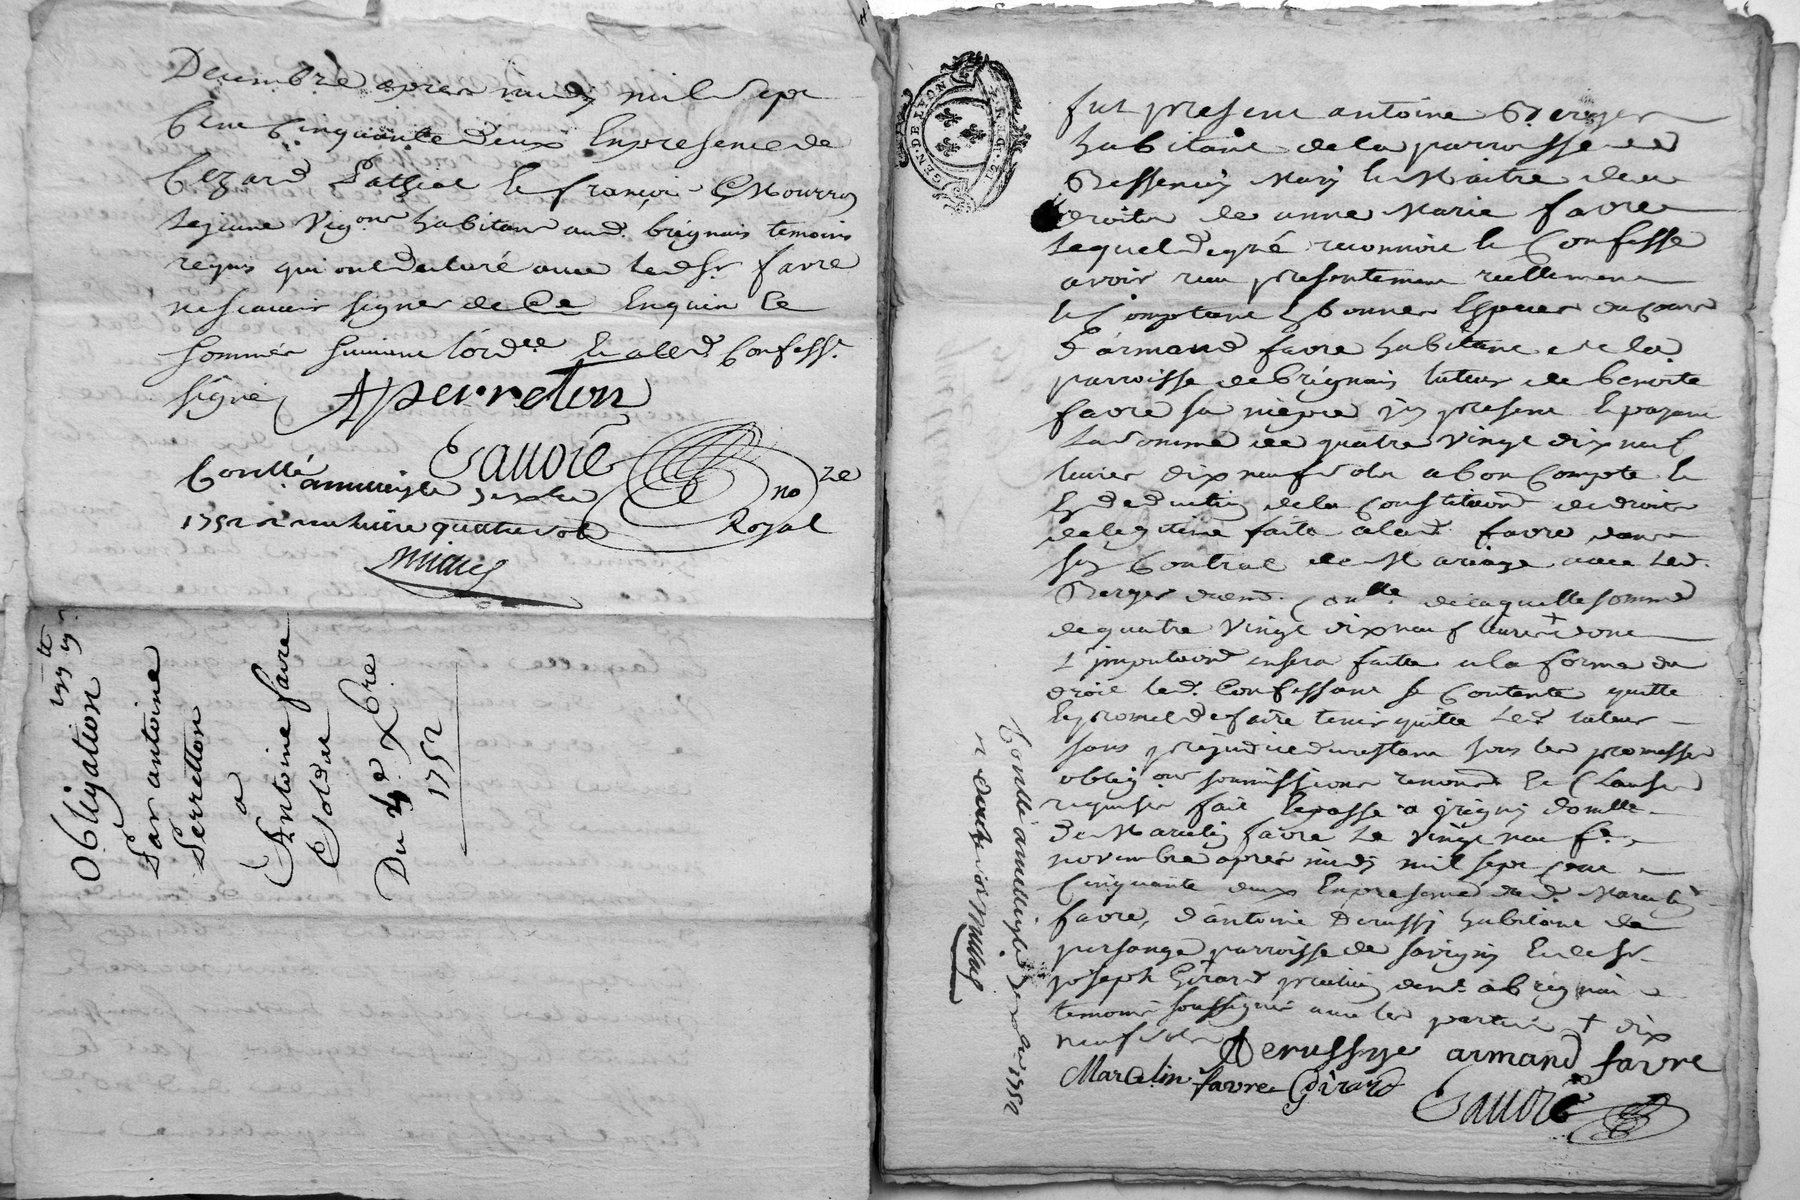 Decembre apres midy mil sept
Cent Cinquante deux En presence de
Cezard et françois
Lejeune Vig.on habitans aud. brignais temoins
requis qui ont declaré avec led. Sr favre
ne scavoir signer de Ce Enquis Et
Sommés suivant l'ord.ce Et a led. Confess.t
signé APerreton
Gavoté no.re
Royal
Con.llé a
1752 r. une livre quatre sols
Obligation 199 lt 19 s.
Par antoine
Perretton
a
Antoine favre
Soldat
Du 4e Xbre
1752
GEN. DE LYON
fut present antoine Berger
habitant de la parroisse de
Bessenay Mary Et Maitre des
droits de anne Marie favre
Lequel de gré reconnoit Et Confesse
avoir reçu presentement reellement
Et Comptant En bonnes Especes du cours
d'armand favre habitant de la
parroisse de brignais tuteur de benoite
favre sa niepce icy present Et payant
La somme de quatre vingt dix neuf
livres dix neuf sols a bon Compte Et
En deduction de la Constitution de droits
de legitime faite a lad. favre dans
son Contrat de Mariage avec led.
Berger de laquelle somme
de quatre vingt dix neuf livres + dont
L'imputation en sera faite a la forme du
droit led. Confessant se Contente quitte
Et promet de faire tenir quitte led. tuteur
sans prejudice du restant sous les promesses
oblig.ons soumissions renond. Et Clauses
requises fait Et passé a Grigny domlle
de Marcelin favre Le vingt neuf
novembre apres midy mil sept cent
Cinquante deux En presence dud. Marcelin
favre, d'antoine Derussy habitant de
persange parroisse de savigny Et de Sr
joseph Girard praticien dem.t a brignais
temoins soussignés avec les parties + dix
neuf sols
Derussye armand favre
Marcelin favre Girard
Gavoté
Con.llé a
1752